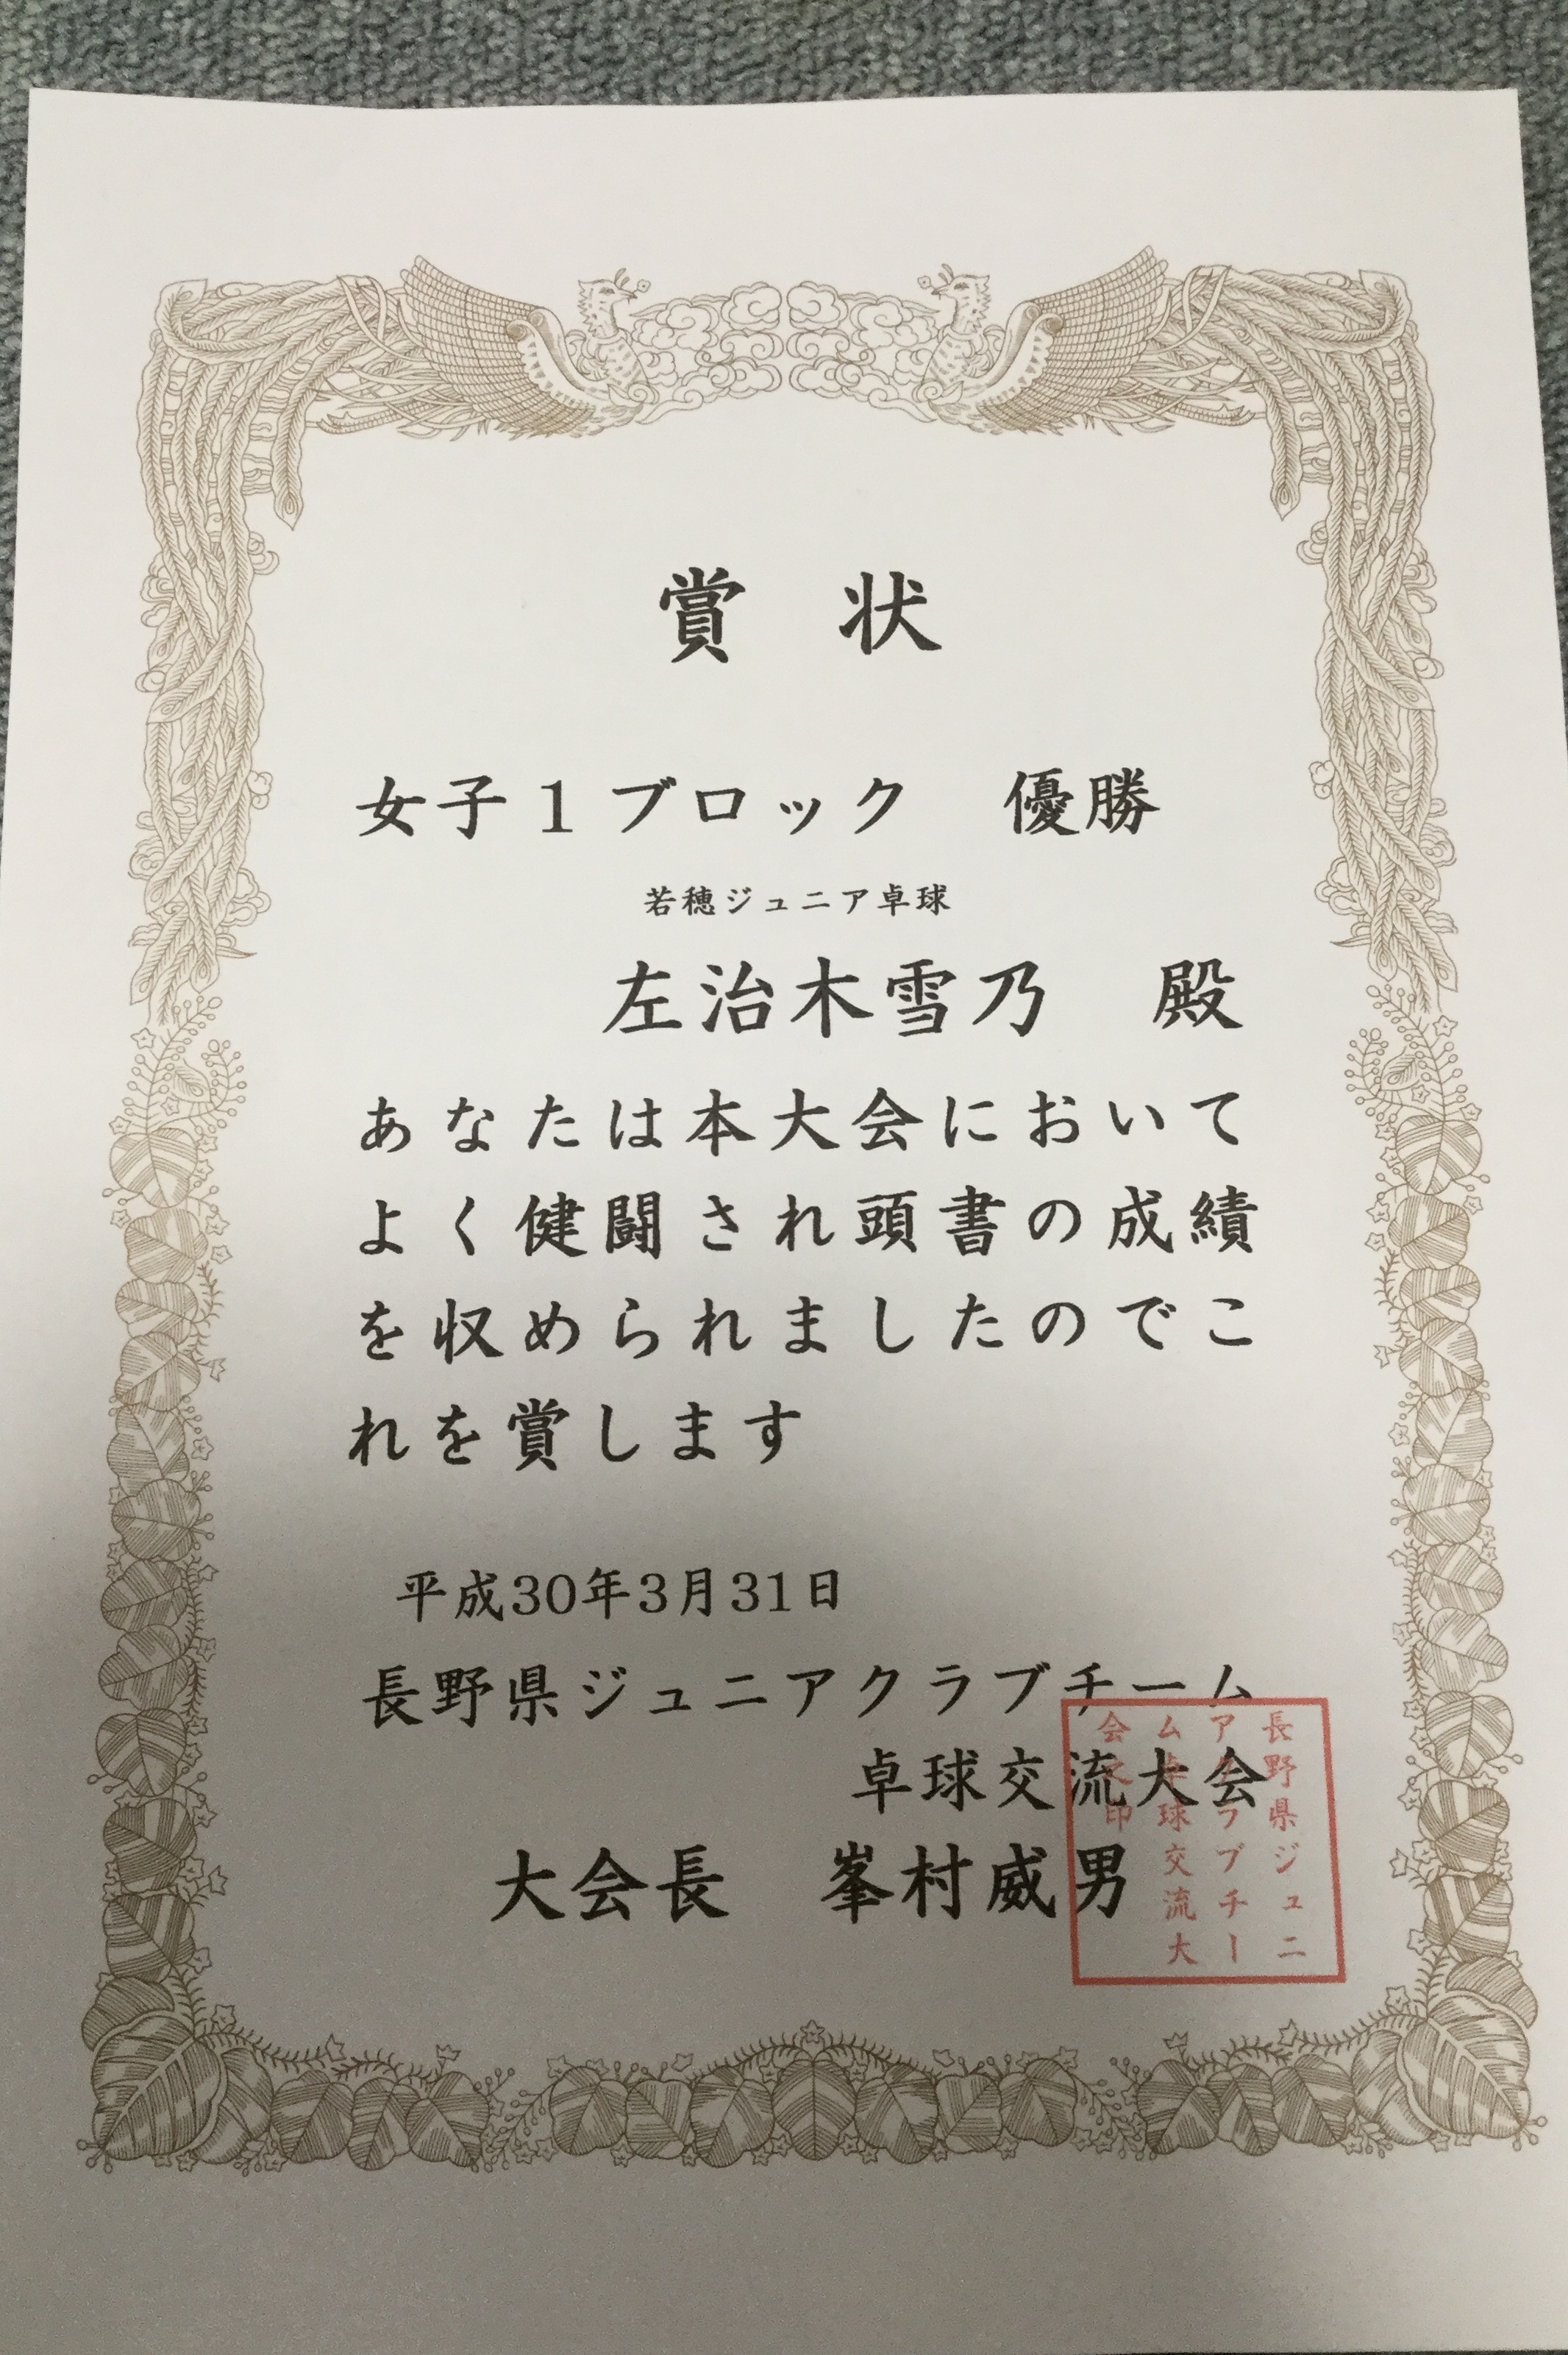 賞　状
女子１ブロック　優勝
若穂ジュニア卓球
左治木雪乃　殿
あなたは本大会において
よく健闘され頭書の成績
を収められましたのでこ
れを賞します
平成30年3月31日
長野県ジュニアクラブチーム
卓球交流大会
大会長　峯村威男
長野県ジュニ
アクラブチー
ム卓球交流大
会之印